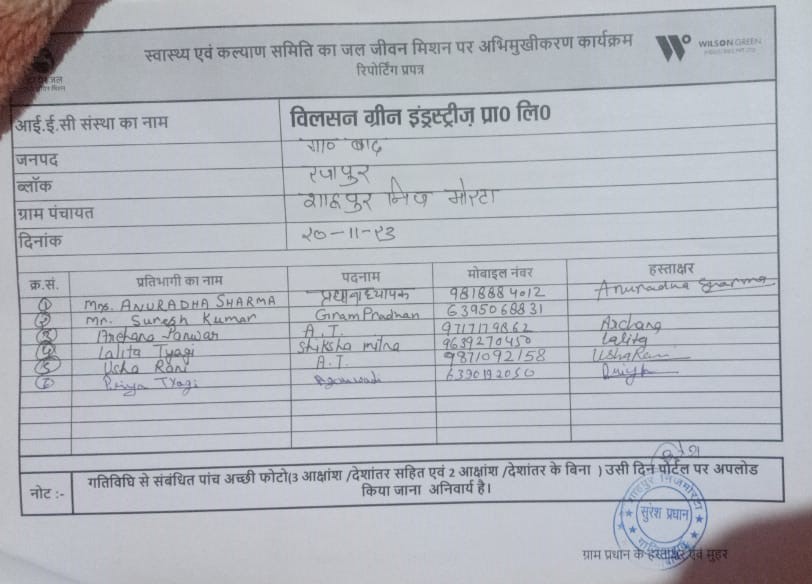 स्वास्थ्य एवं कल्याण समिति का जल जीवन मिशन पर अभिमुखीकरण कार्यक्रम
WILSON GREEN
रिपोर्टिंग प्रपत्र
आई.ई.सी संस्था का नाम विलसन ग्रीन इंडस्ट्रीज़ प्रा० लि०
जनपद गा० बाद
ब्लॉक रजापुर
ग्राम पंचायत शाहपुर निज मोरटा
दिनांक २०-११-२3
क्र.सं. प्रतिभागी का नाम पदनाम मोबाइल नंवर हस्ताक्षर
① Mrs. ANURADHA SHARMA प्रधानाध्यापक 9818884012 Anuradha Sharma
② Mr. Suresh Kumar Gram Pradhan 6395068831
③ Archana Panwar A.T. 9717179862 Archana
④ Lalita Tyagi Shiksha mitra 9639270450 Lalita
⑤ Usha Rani A.T. 9871092158 Usha Rani
Priya Tyagi 6390192050 Priya
नोट :- गतिविधि से संबंधित पांच अच्छी फोटो(3 आक्षांश /देशांतर सहित एवं 2 आक्षांश /देशांतर के बिना ) उसी दिन पोर्टल पर अपलोड
किया जाना अनिवार्य है।
सुरेश प्रधान
ग्राम प्रधान के हस्ताक्षर एवं मुहर